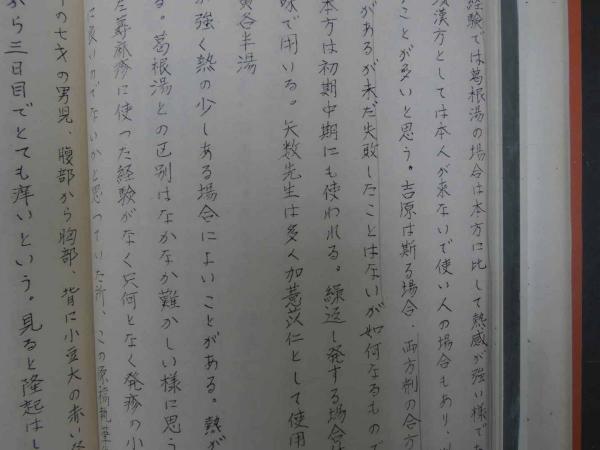 経験では葛根湯の場合は本方に比して熱感が強い様でな
漢方としては本人が来ないで使い人の場合もあり、
ことが多いと思う。吉原は斯る場合、両方剤の合方
があるが未だ失敗したことはないが如何なるもので
本方は初期中期にも使われる。繰返し発する場合
味で用いる。矢数先生は多く加薏苡仁として使用
黄各半湯
が強く熱の少しある場合によいことがある。熱が
る。葛根湯との区別はなかなか難かしい様に思う
蕁麻疹に使った経験がなく只何となく発疹の小
に良いのでないかと思っていた所、この原稿執筆
の七才の男児、腹部から胸部、背に小豆大の赤い
から三日目でとても痒いという。見ると隆起はし